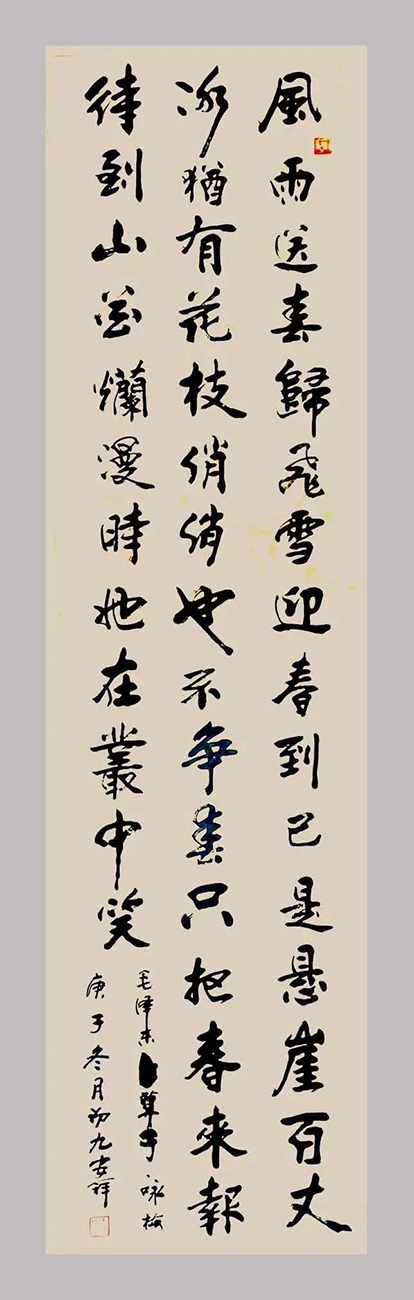 風雨送春歸飛雪迎春到已是悬崖百丈
冰猶有花枝俏俏也不争春只把春來報
待到山花爛漫時她在叢中笑
毛泽东算子咏梅
庚子冬月初九安祥